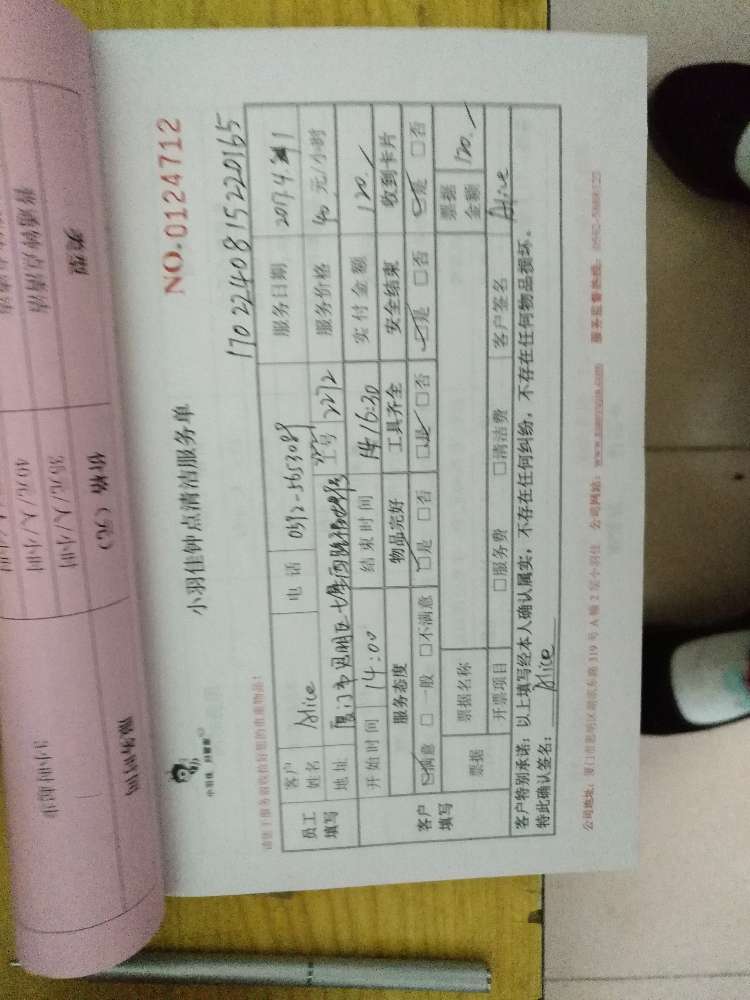 小羽佳钟点清洁服务单
NO.0124712
小羽佳
请您于服务前收拾好您的贵重物品!
170224081522 0165
员工填写 客户姓名 Alice 电话 0592-5653089 服务日期 2017.4.1
地址 厦门市思明区 工号 2272 服务价格 40 元/小时
开始时间 14:00 结束时间 16:30 实付金额 120.
客户填写 服务态度 物品完好 工具齐全 安全结束 收到卡片
☑满意 □一般 □不满意 ☑是 □否 ☑是 □否 ☑是 □否 ☑是 □否
票据 票据名称 票据金额 120.
开票项目 □服务费 □清洁费 客户签名 Alice
客户特别承诺:以上填写经本人确认属实,不存在任何纠纷,不存在任何物品损坏。
特此确认签名: Alice
公司地址:厦门市思明区湖滨东路 319 号 A 幢 2 层小羽佳 公司网站: 服务监督热线:
类型
普通钟点清洁
价格(元)
35元/人/小时
40元/人/小时
服务时间
3小时起步